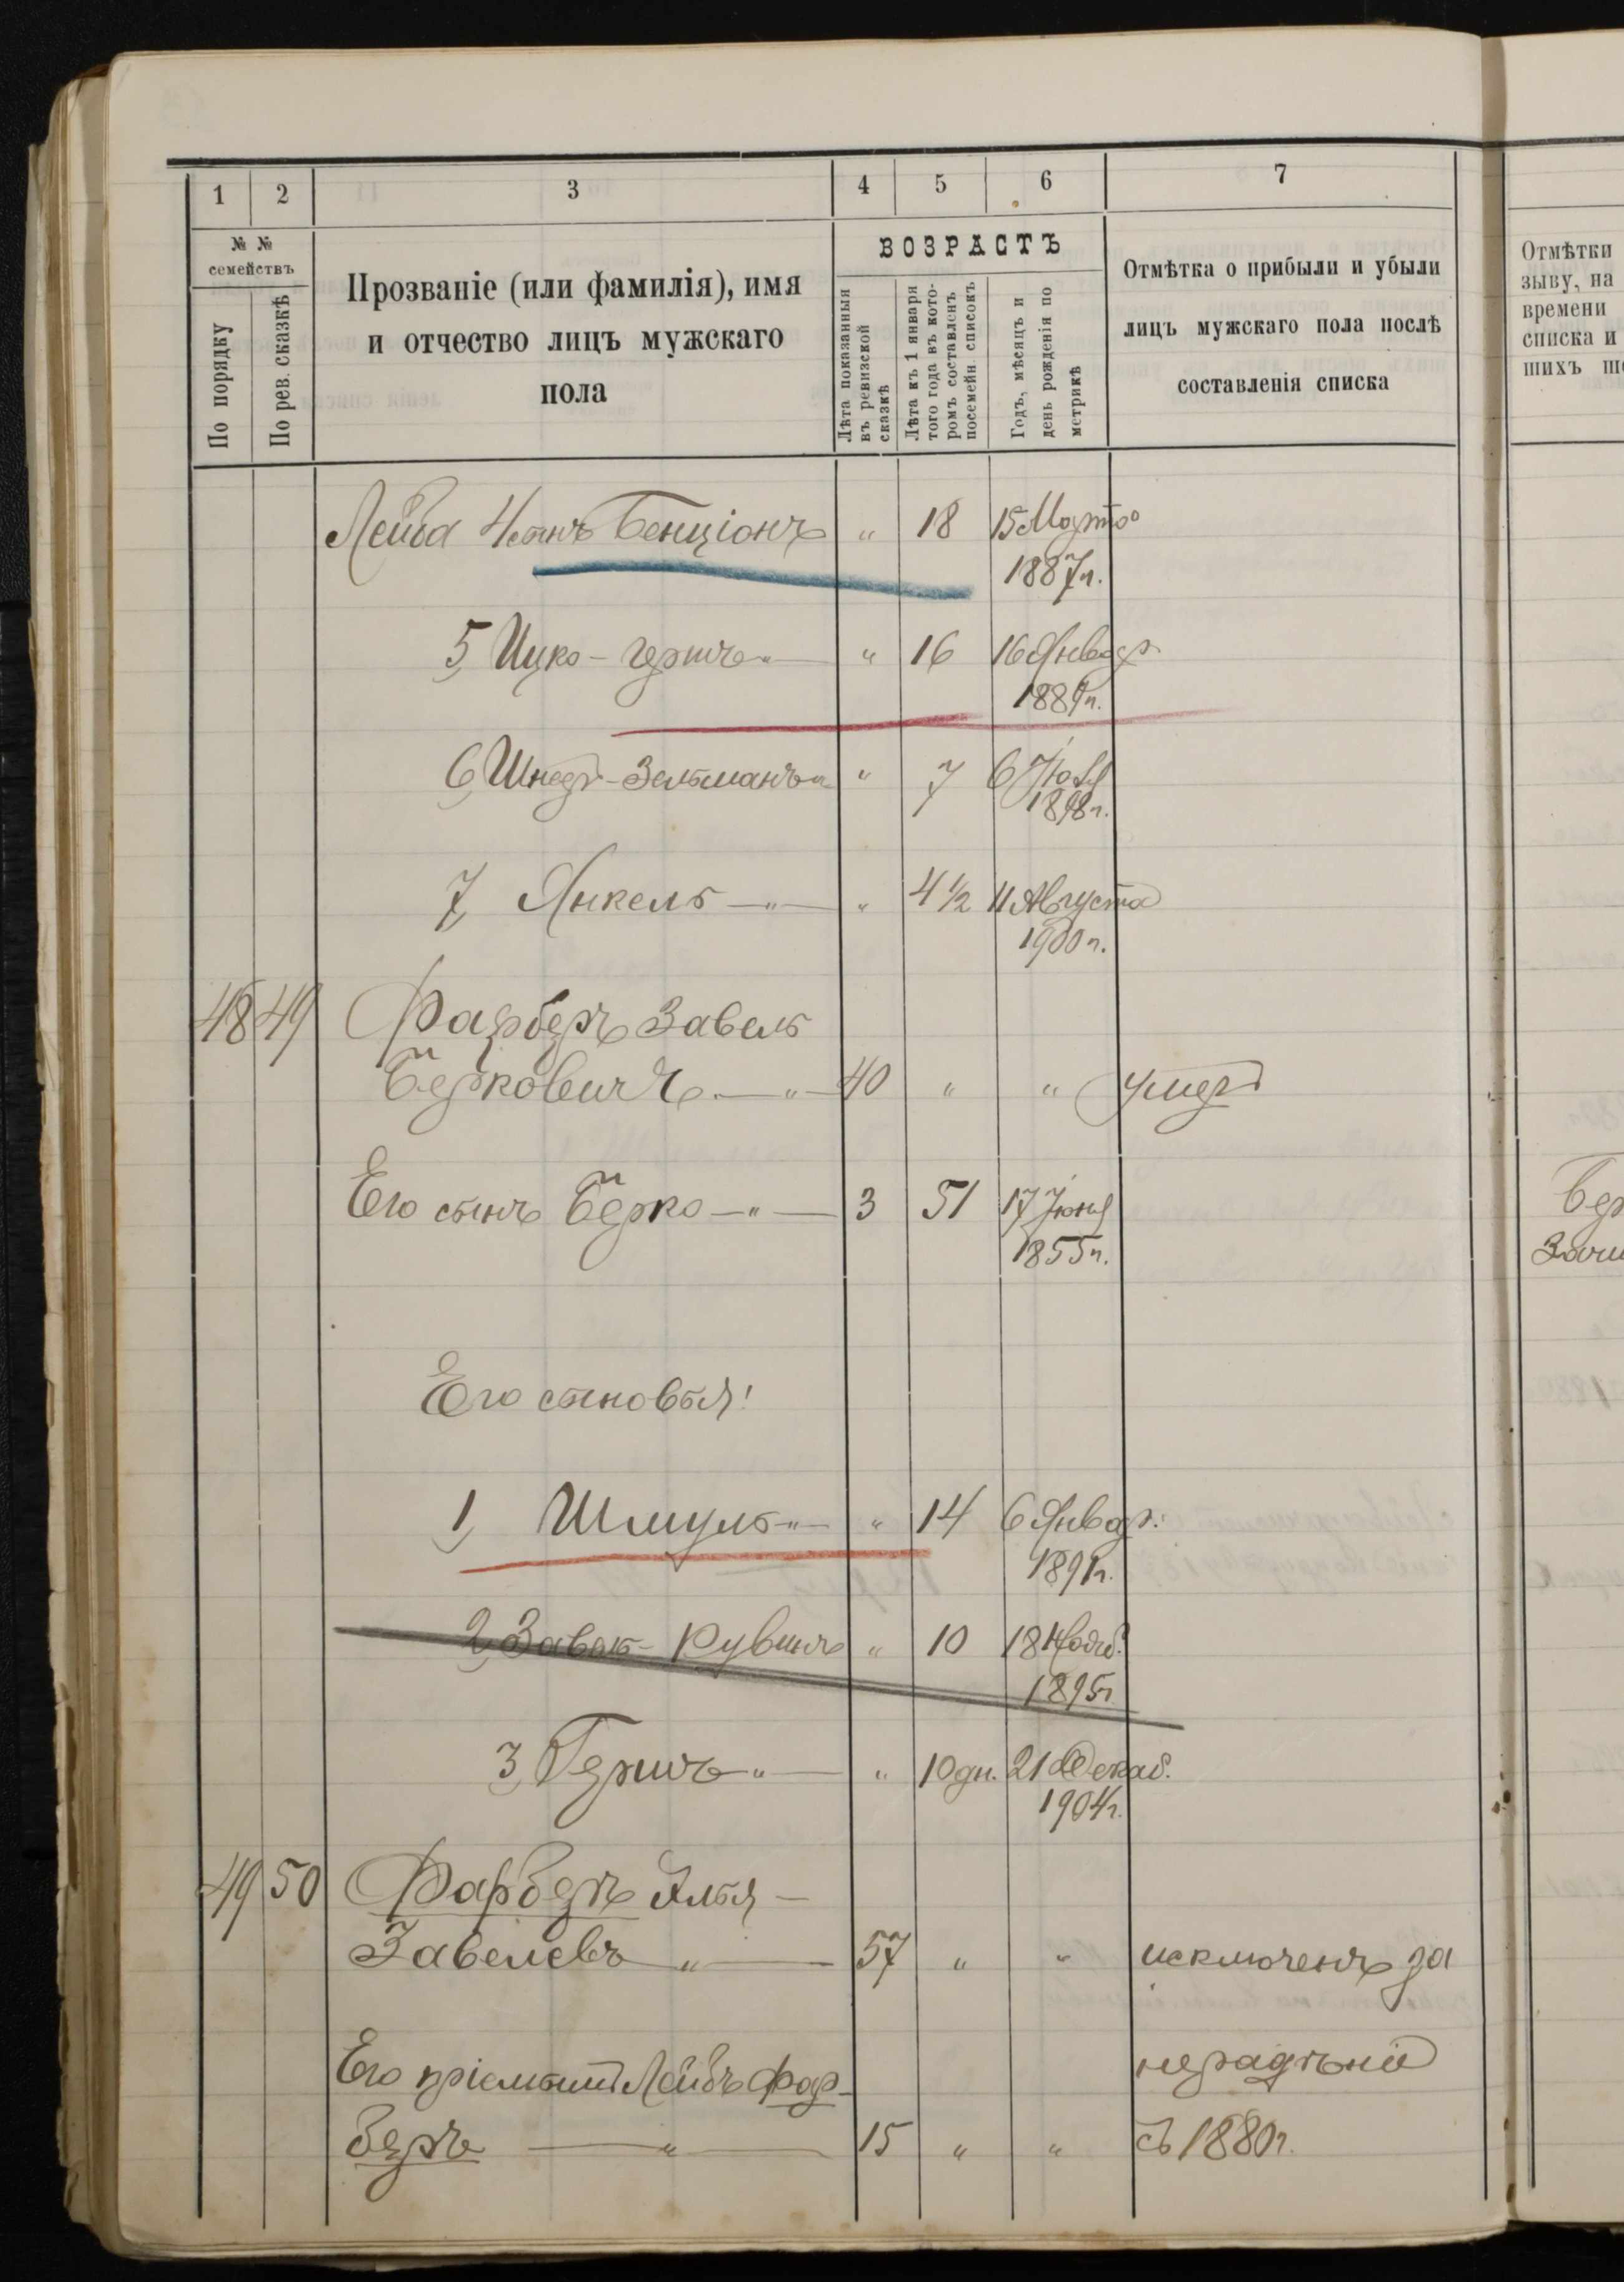 1 2 3 4 5 6 7
№ №
семействъ
По порядку
По рев. сказкѣ
Прозваніе (или фамилія), имя
и отчество лицъ мужскаго
пола
ВОЗРАСТЪ
Лѣта показанныя
въ ревизской
сказкѣ
Лѣта къ 1 января
того года въ кото-
ромъ составленъ
посемейн. списокъ
Годъ, мѣсяцъ и
день рожденія по
метрикѣ
Отмѣтка о прибыли и убыли
лицъ мужскаго пола послѣ
составленія списка
Отмѣтки
зыву, на
времени
списка и
шихъ
Лейба 4 сынъ Бенціонъ „ 18 15 Марта
1887 г.
5, Ицко - Гершъ „ „ 16 16 Январ.
1889 г.
6, Шнеер - Зельманъ „ „ 7 6
1898 г.
7, Янкель — „ — „ 4 ½ 11 Августа
1900 г.
48 49 Фарберъ Завель
Берковичъ — „ — 40 „ „ умеръ
Его сынъ Берко — „ — 3 51 17 Іюня
1855 г.
Его сыновья:
1, Шмуль — „ — „ 14 6 Январ.
1891 г.
2, Завель - Рувинъ „ 10 18 Нояб.
1895 г.
3, Гершъ „ — „ 10 дн. 21 Декаб.
1904 г.
49 50 Фарберъ Элья —
Завелевъ „ — 57 „ „ исключенъ за
Его пріемышъ Лейбъ Фар- нерадѣніе
беръ — „ — 15 „ „ съ 1880 г.